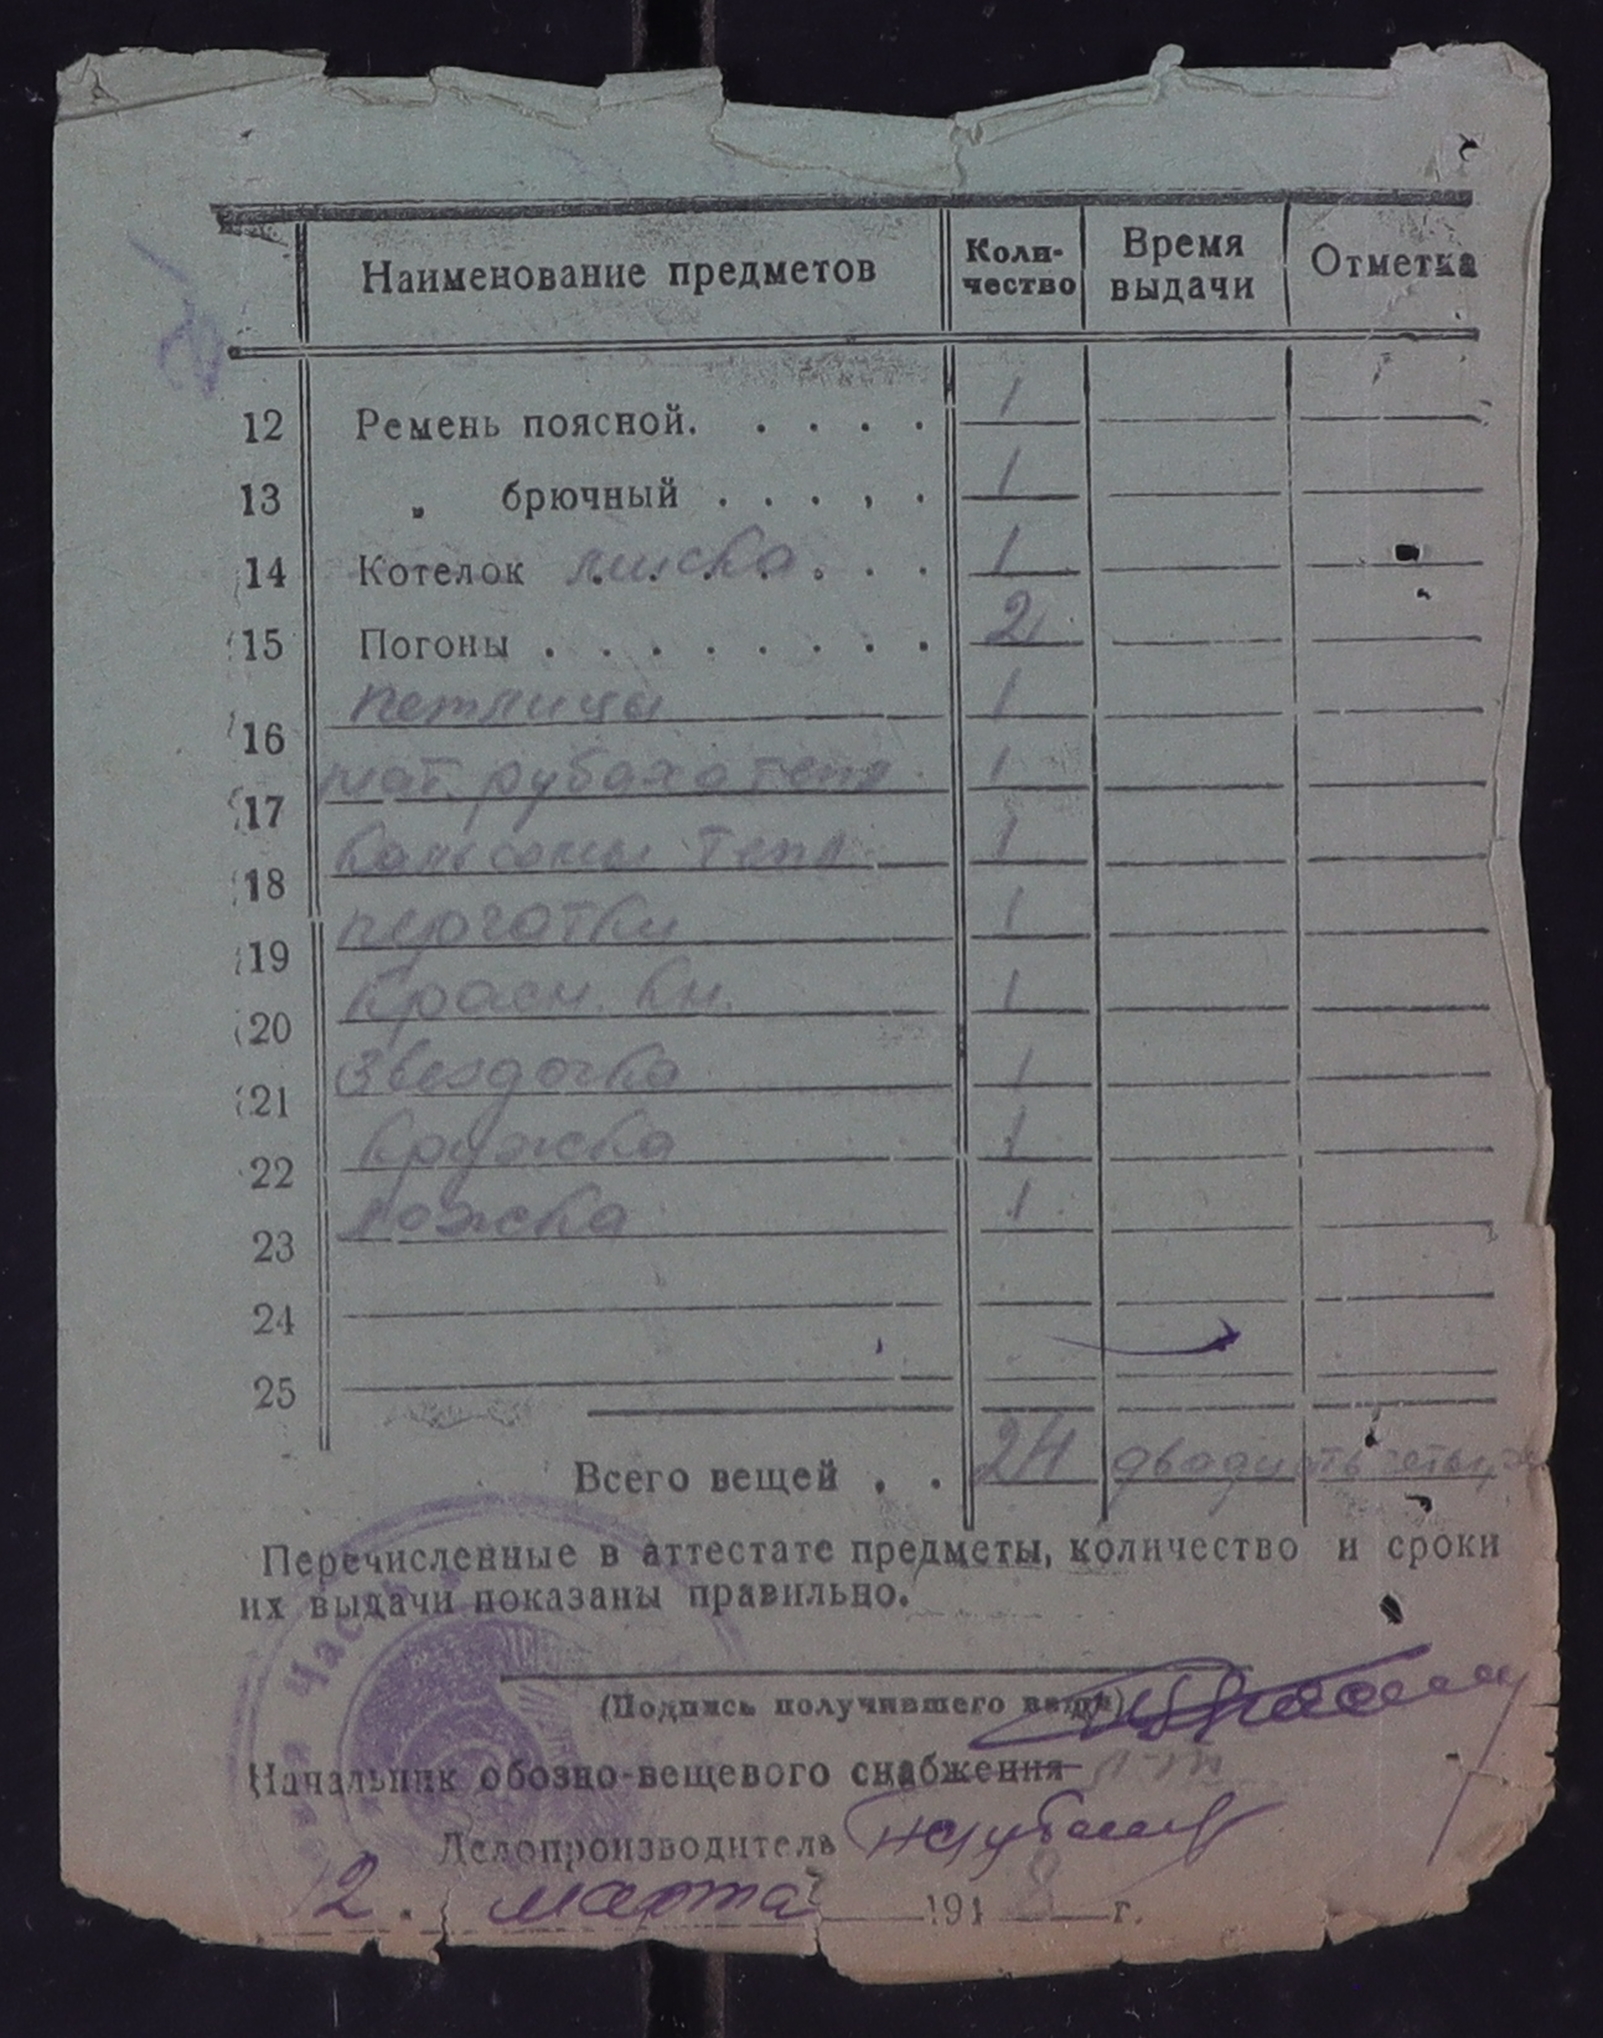 Наименование предметов Коли-чество Время выдачи Отметка
12 Ремень поясной. . . . . 1
13 „ брючный . . . , . 1
14 Котелок миска . . . 1
15 Погоны . . . . . . . . 2
16 петлицы 1
17 нат. рубаха тепл. 1
18 Кальсоны тепл. 1
19 перчатки 1
20 Красн. кн. 1
21 Звездочка 1
22 Кружка 1
23 ложка 1
24
25
Всего вещей . . 24 двадцать четыре
Перечисленные в аттестате предметы, количество и сроки
их выдачи показаны правильно.
Часть
(Подпись получившего вещи)
Начальник обозно-вещевого снабжения л-т
Делопроизводитель
12. марта 1948 г.